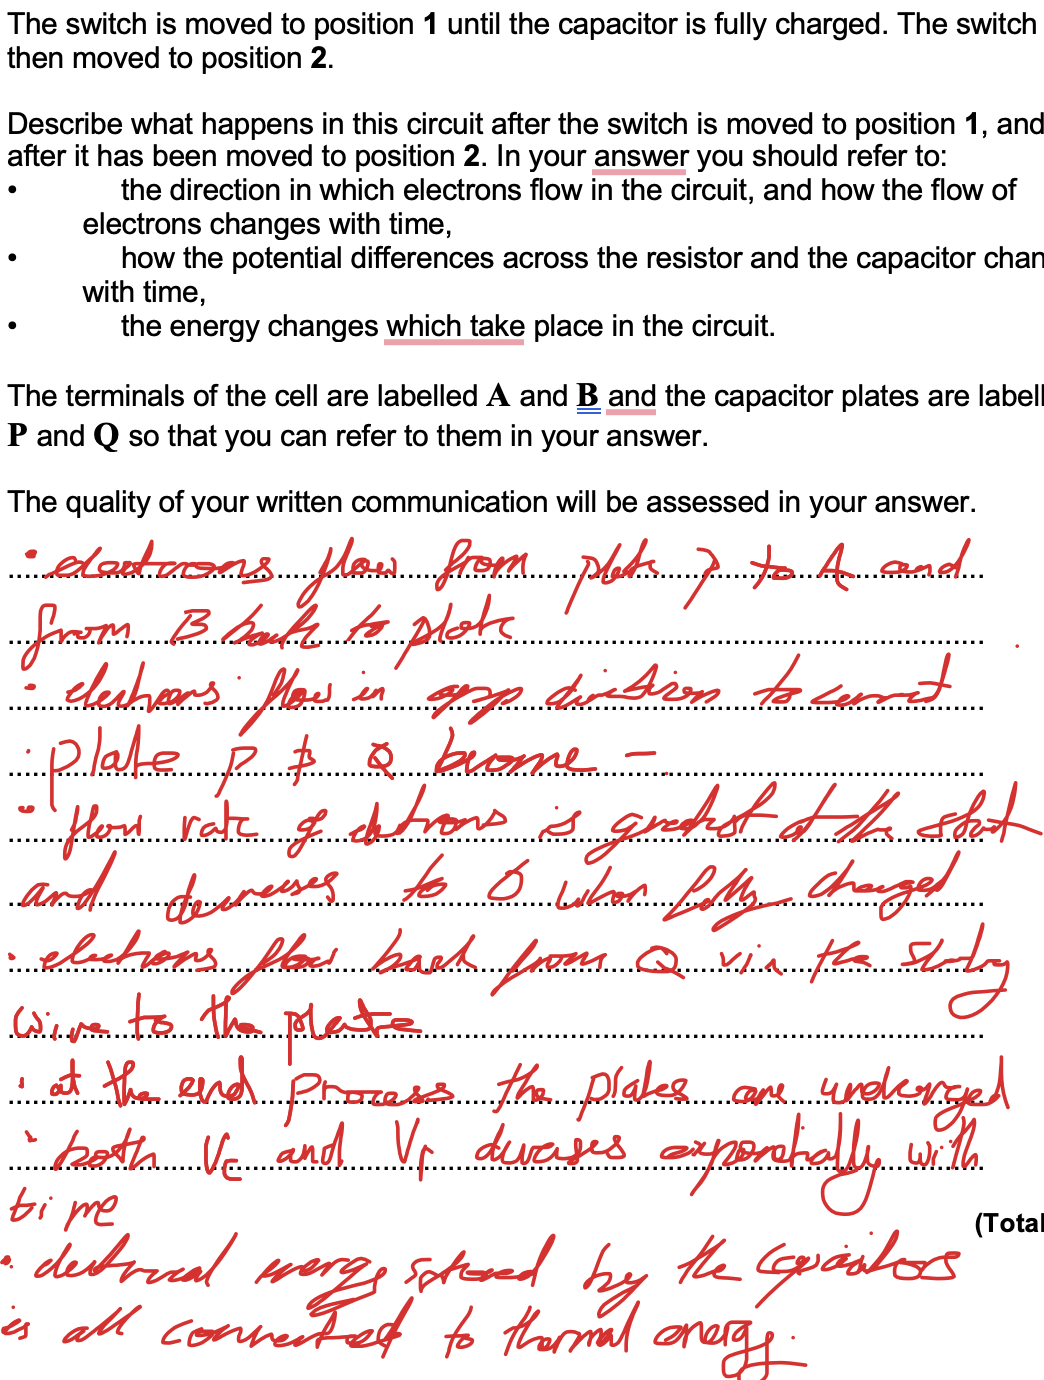 The switch is moved to position 1 until the capacitor is fully charged. The switch
then moved to position 2.
Describe what happens in this circuit after the switch is moved to position 1, and
after it has been moved to position 2. In your answer you should refer to:
• the direction in which electrons flow in the circuit, and how the flow of
electrons changes with time,
• how the potential differences across the resistor and the capacitor chan
with time,
• the energy changes which take place in the circuit.
The terminals of the cell are labelled A and B and the capacitor plates are labell
P and Q so that you can refer to them in your answer.
The quality of your written communication will be assessed in your answer.
• electrons flow from plate P to A and
from B back to plate
• electrons flow in opp direction to current
• plate P & Q become –
• flow rate of electrons is greatest at the start
and decreases to 0 when fully charged
• electrons flow back from Q via the
wire to the plate
• at the end process the plates are
• both Vc and Vr exponentially with
time
(Total
• electrical energy stored by the capacitors
is all converted to thermal energy.